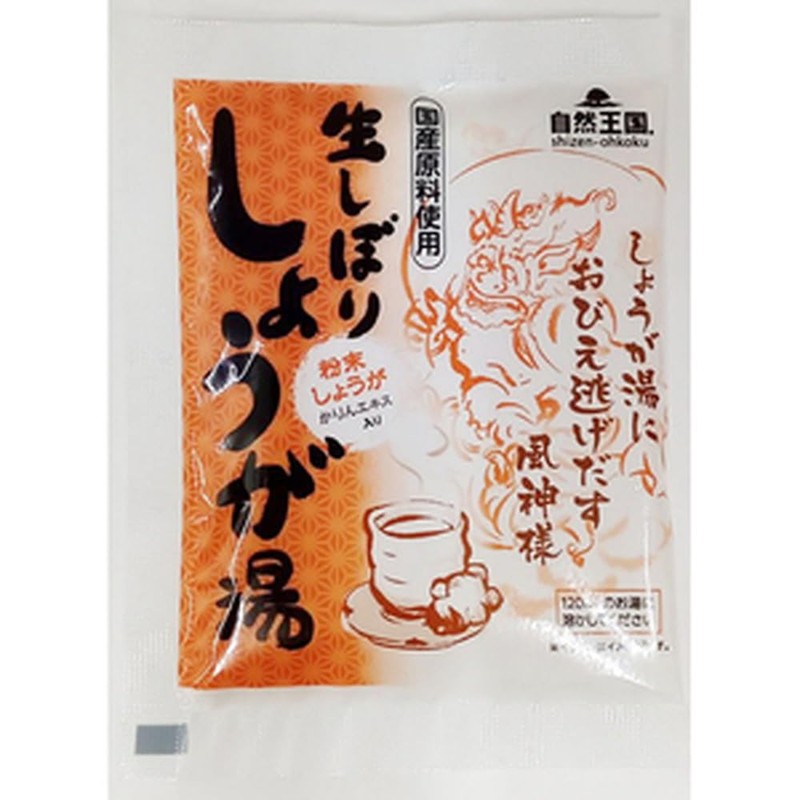 生しぼり
しょうが湯
国産原料使用
粉末
しょうが
かりんエキス
入り
自然王国
shizen-ohkoku
しょうが湯に
おびえ逃げだす
風神様
のお湯に
溶かしてください